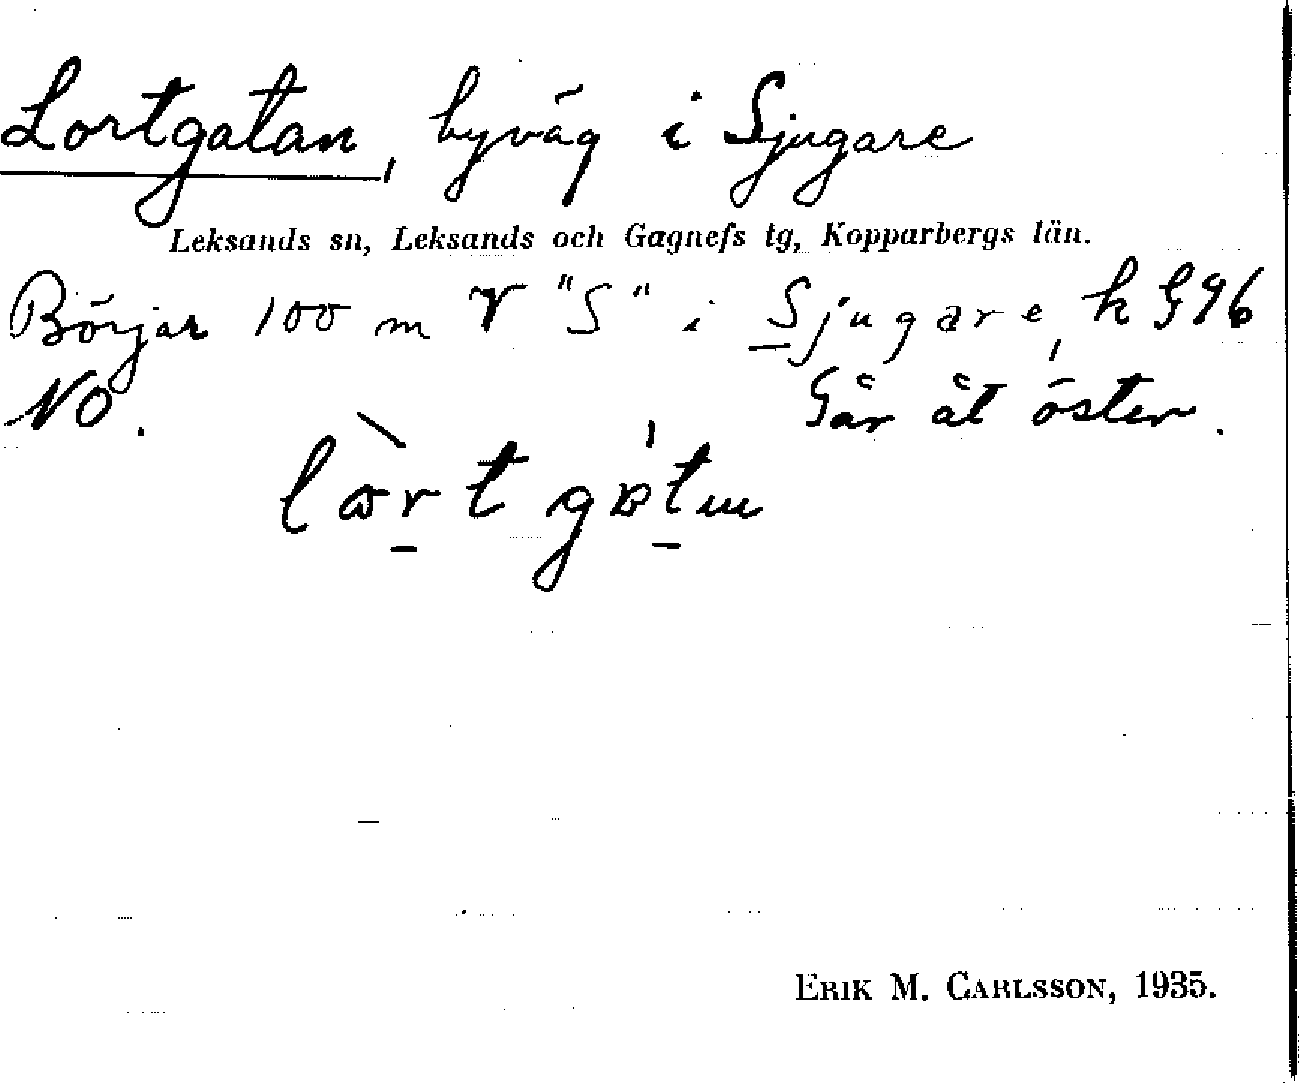 Lortgatan, byväg i Sjugare
Leksands sn, Leksands och Gagnefs tg, Kopparbergs län.
Börjar 100 m V "S" i Sjugare, k G96
NO. Går åt öster.
ERIK M. CARLSSON, 1935.